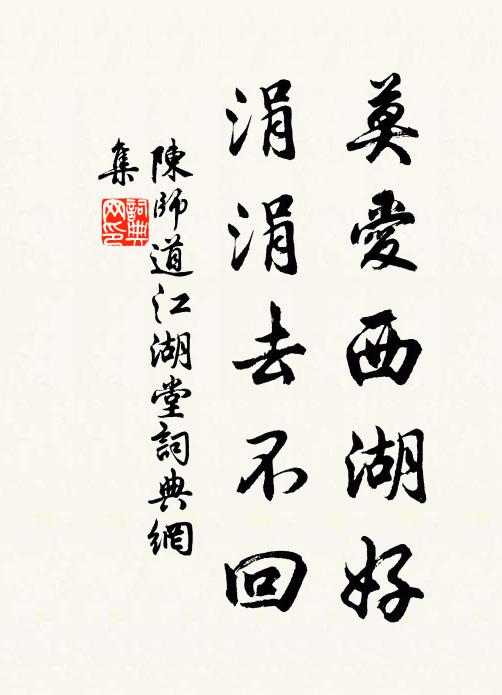 莫愛西湖好
涓涓去不回
陳師道江湖堂詞典網
集
詞典
网印